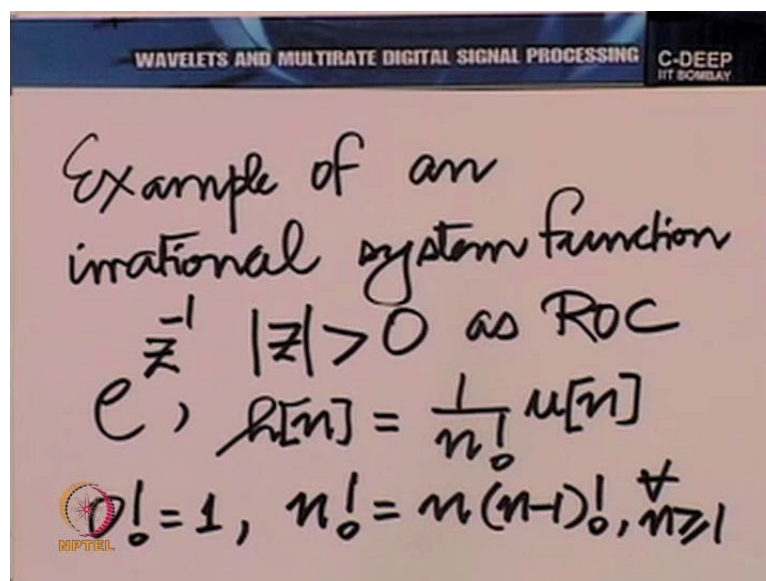 WAVELETS AND MULTIRATE DIGITAL SIGNAL PROCESSING
C-DEEP
IIT BOMBAY
Example of an
irrational system function
e^{z^{-1}}, |z| > 0 as ROC
h[n] = \frac{1}{n!} u[n]
0! = 1, n! = n(n-1)!, ∀ n ≥ 1
NPTEL